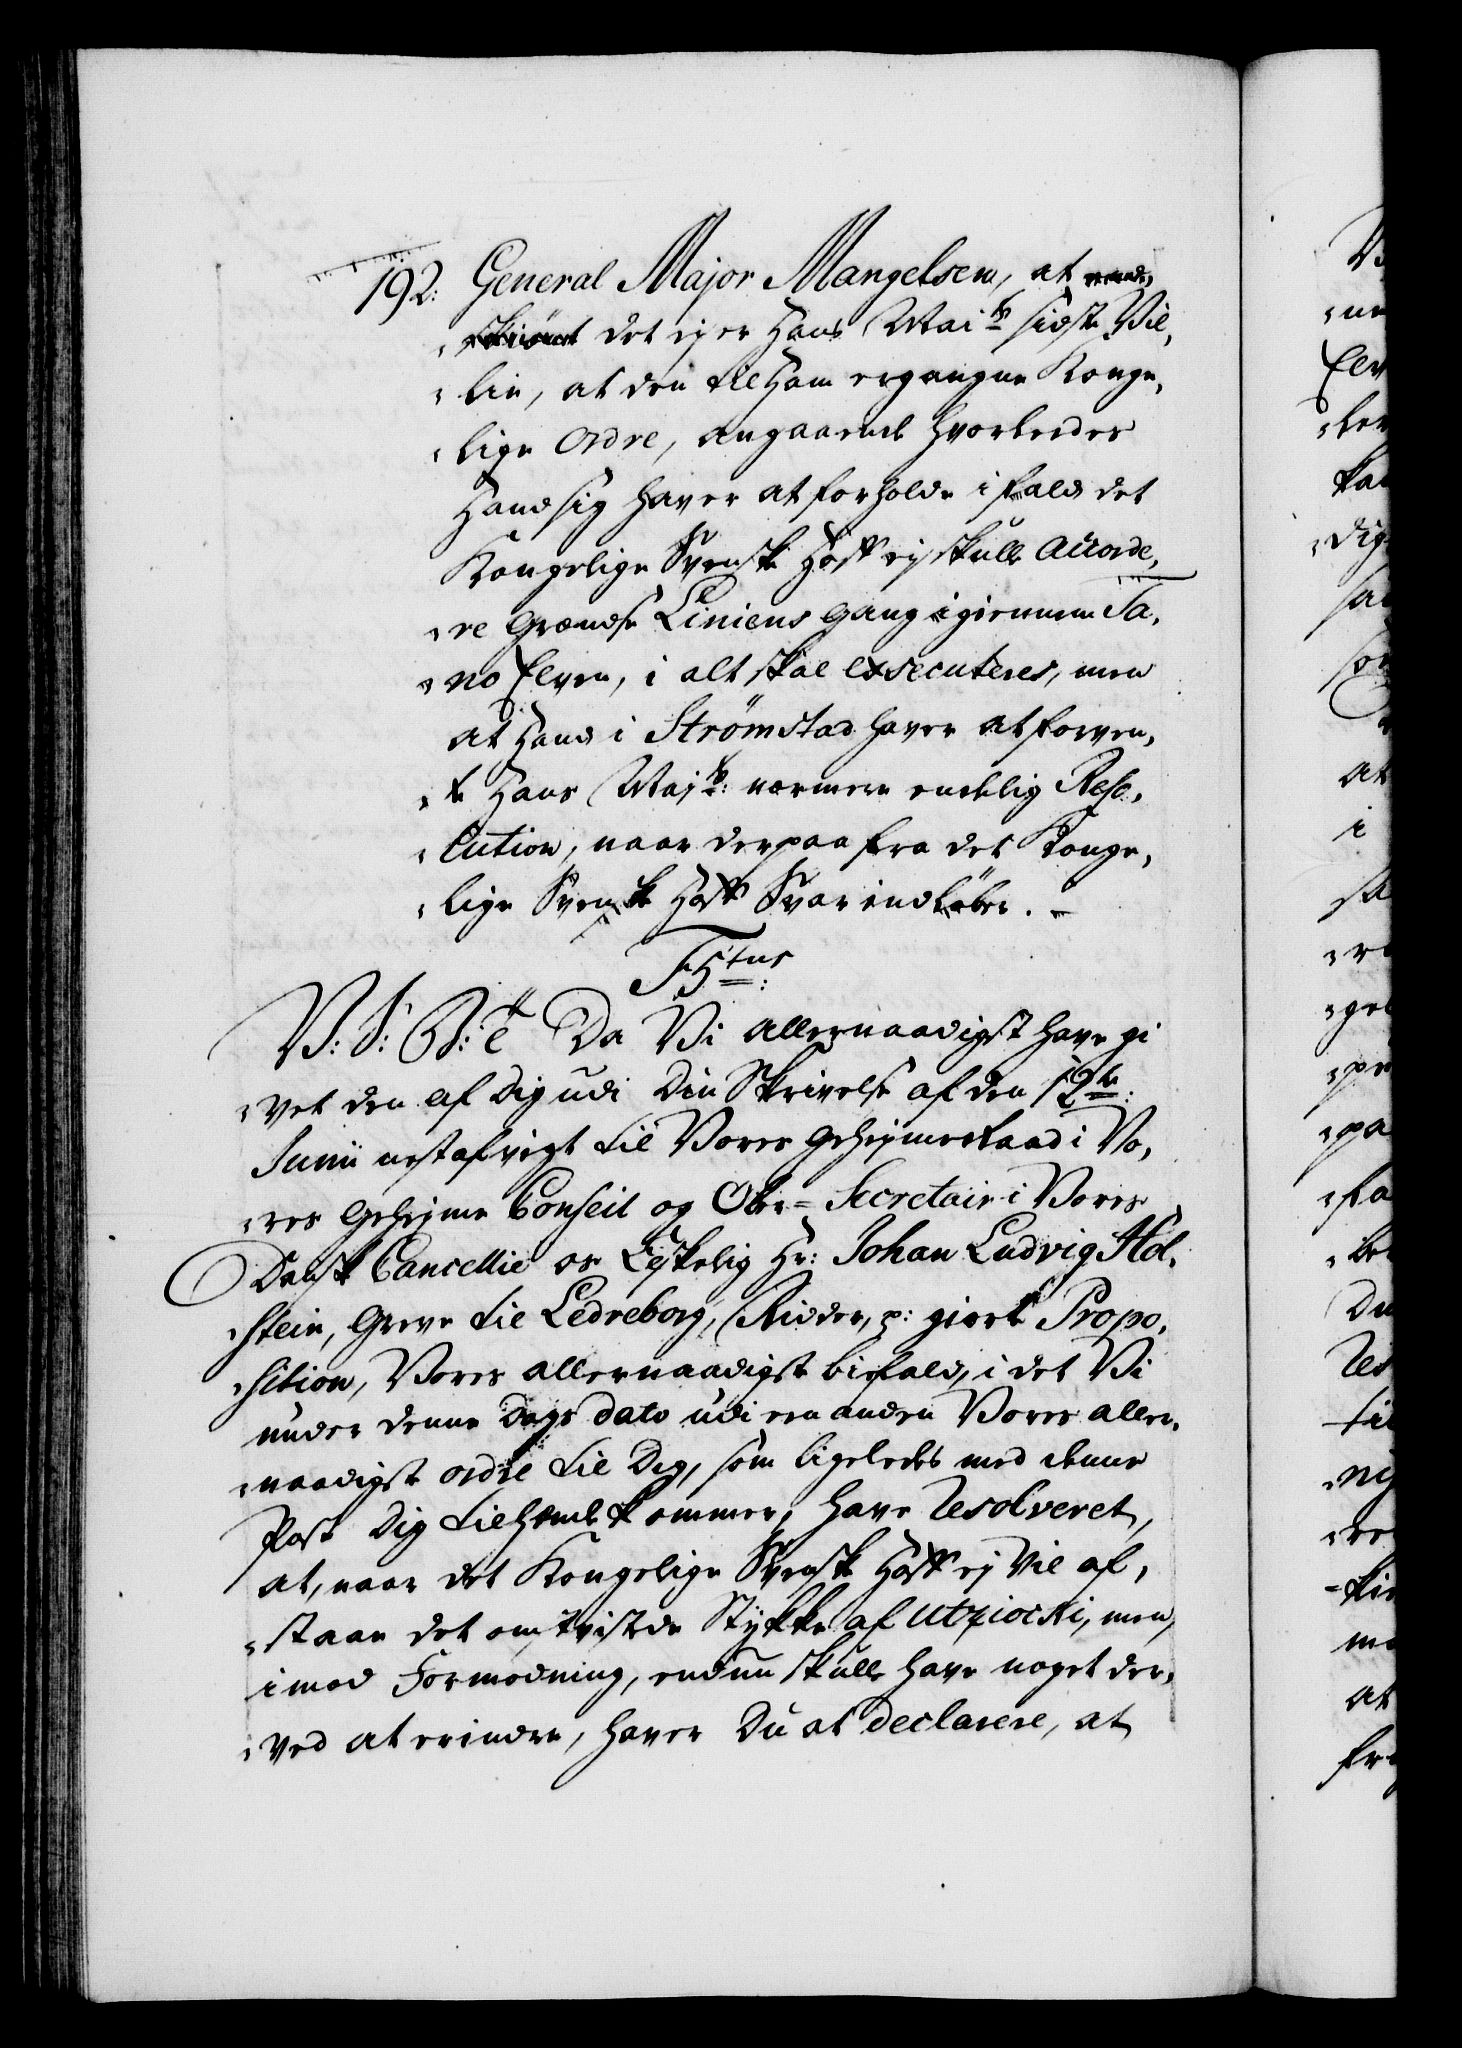 192. General Major Mangelsen, at
det ej er Hans Maitz sidste Vil„
„lie, at den til Ham ergangne Konge„
„lige Ordre, angaaende hvorledes
Hand sig haver at forholde ifald det
Kongelige Svenske Hoff ej skulle accorde„
„re Grændse Liniens gang igiennem Ta„
„no Elven, i alt skal exsecuteres, men
at Hand i Strømstad haver at forven„
„te Hans Majtz: nærmere endelig Reso„
„lution, naar derpaa fra det Konge„
„lige Svenske Hoff Svar indløber. –
F5tus:
V: S: G: T Da Vi allernaadigst have gi
„vet den af Dig udi Din Skrivelse af den 12te:
Junii nestafvigt til Vores Geheimeraad i Vo„
„res Geheime Conseil og Ober-Secretair i Vores
Danske Cancellie os Elskelig Hr: Johan Ludvig Hol„
„stein, Greve til Ledreborg, Ridder, p: giorte Propo„
„sition, Vores allernaadigst bifald, i det Vi
under denne Dags dato udi een anden Vores aller„
„naadigst ordre til Dig, som ligeledes med denne
Post Dig tilhændekommer, have resolveret,
at, naar det Kongelige Svenske Hoff ej vil af„
„staae det omtvistede Stykke af Utziocki, men,
imod Formodning, endnu skulle have noget der„
„ved at erindre, haver Du at declarere, at